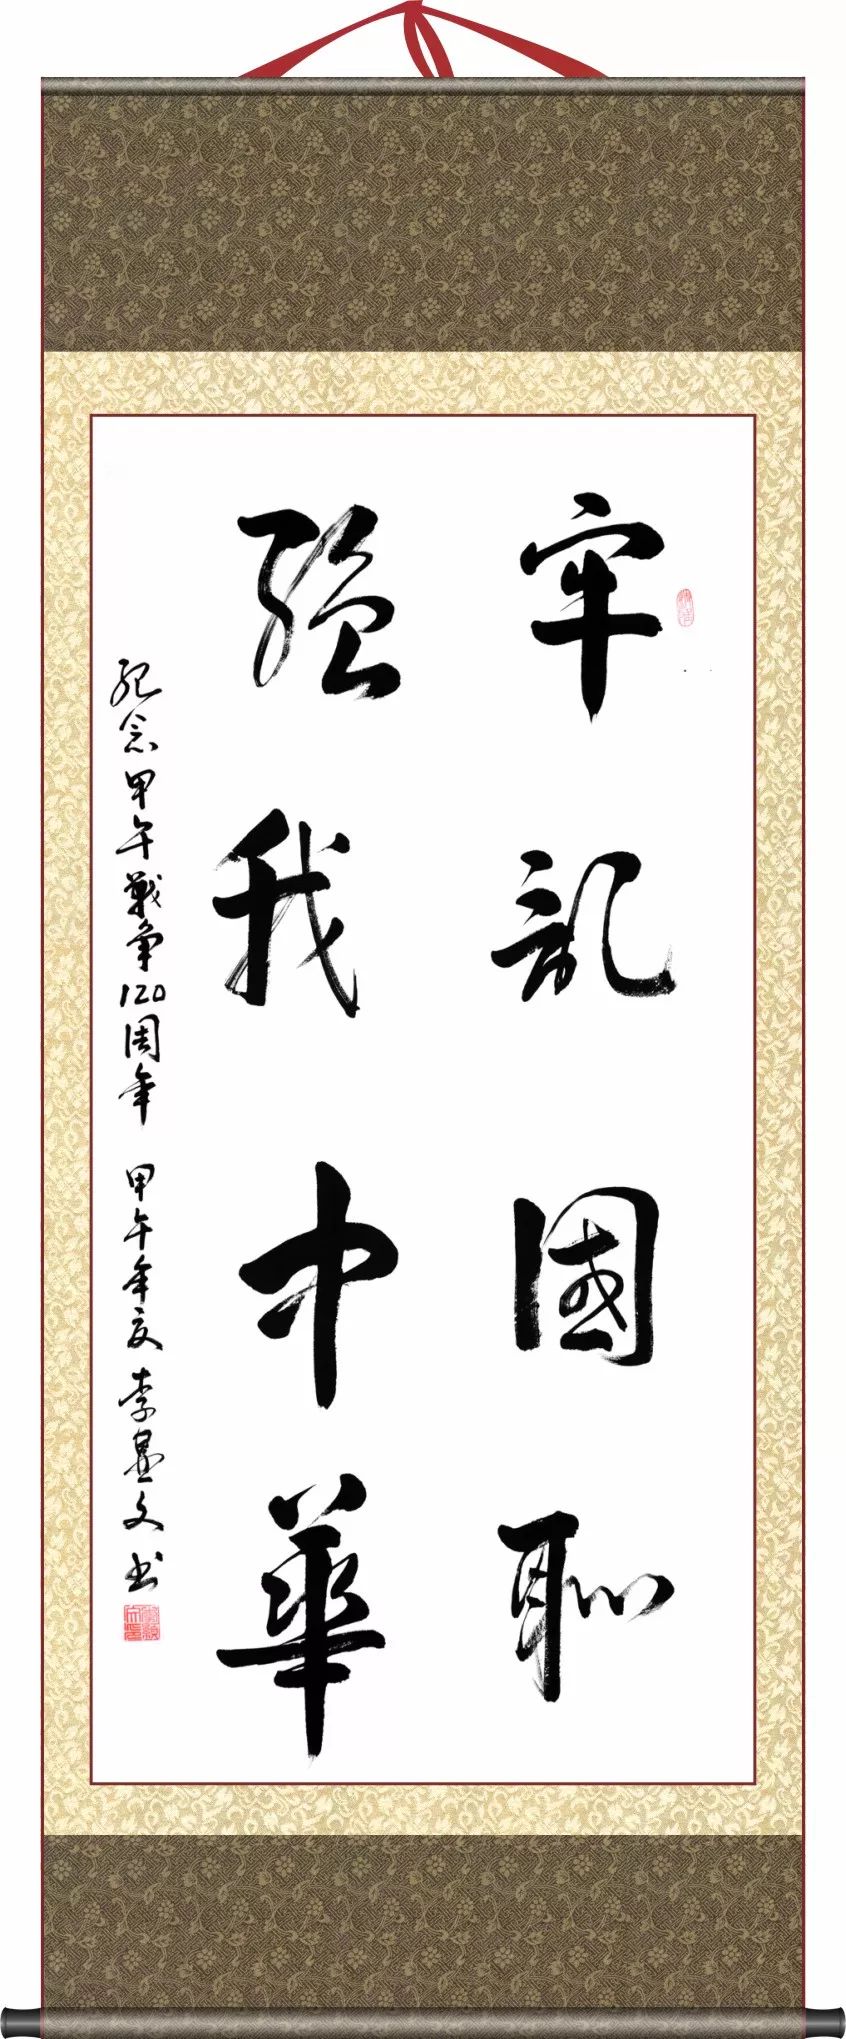 牢記國恥
強我中華
纪念甲午戰争120周年 甲午年夏 李显文书